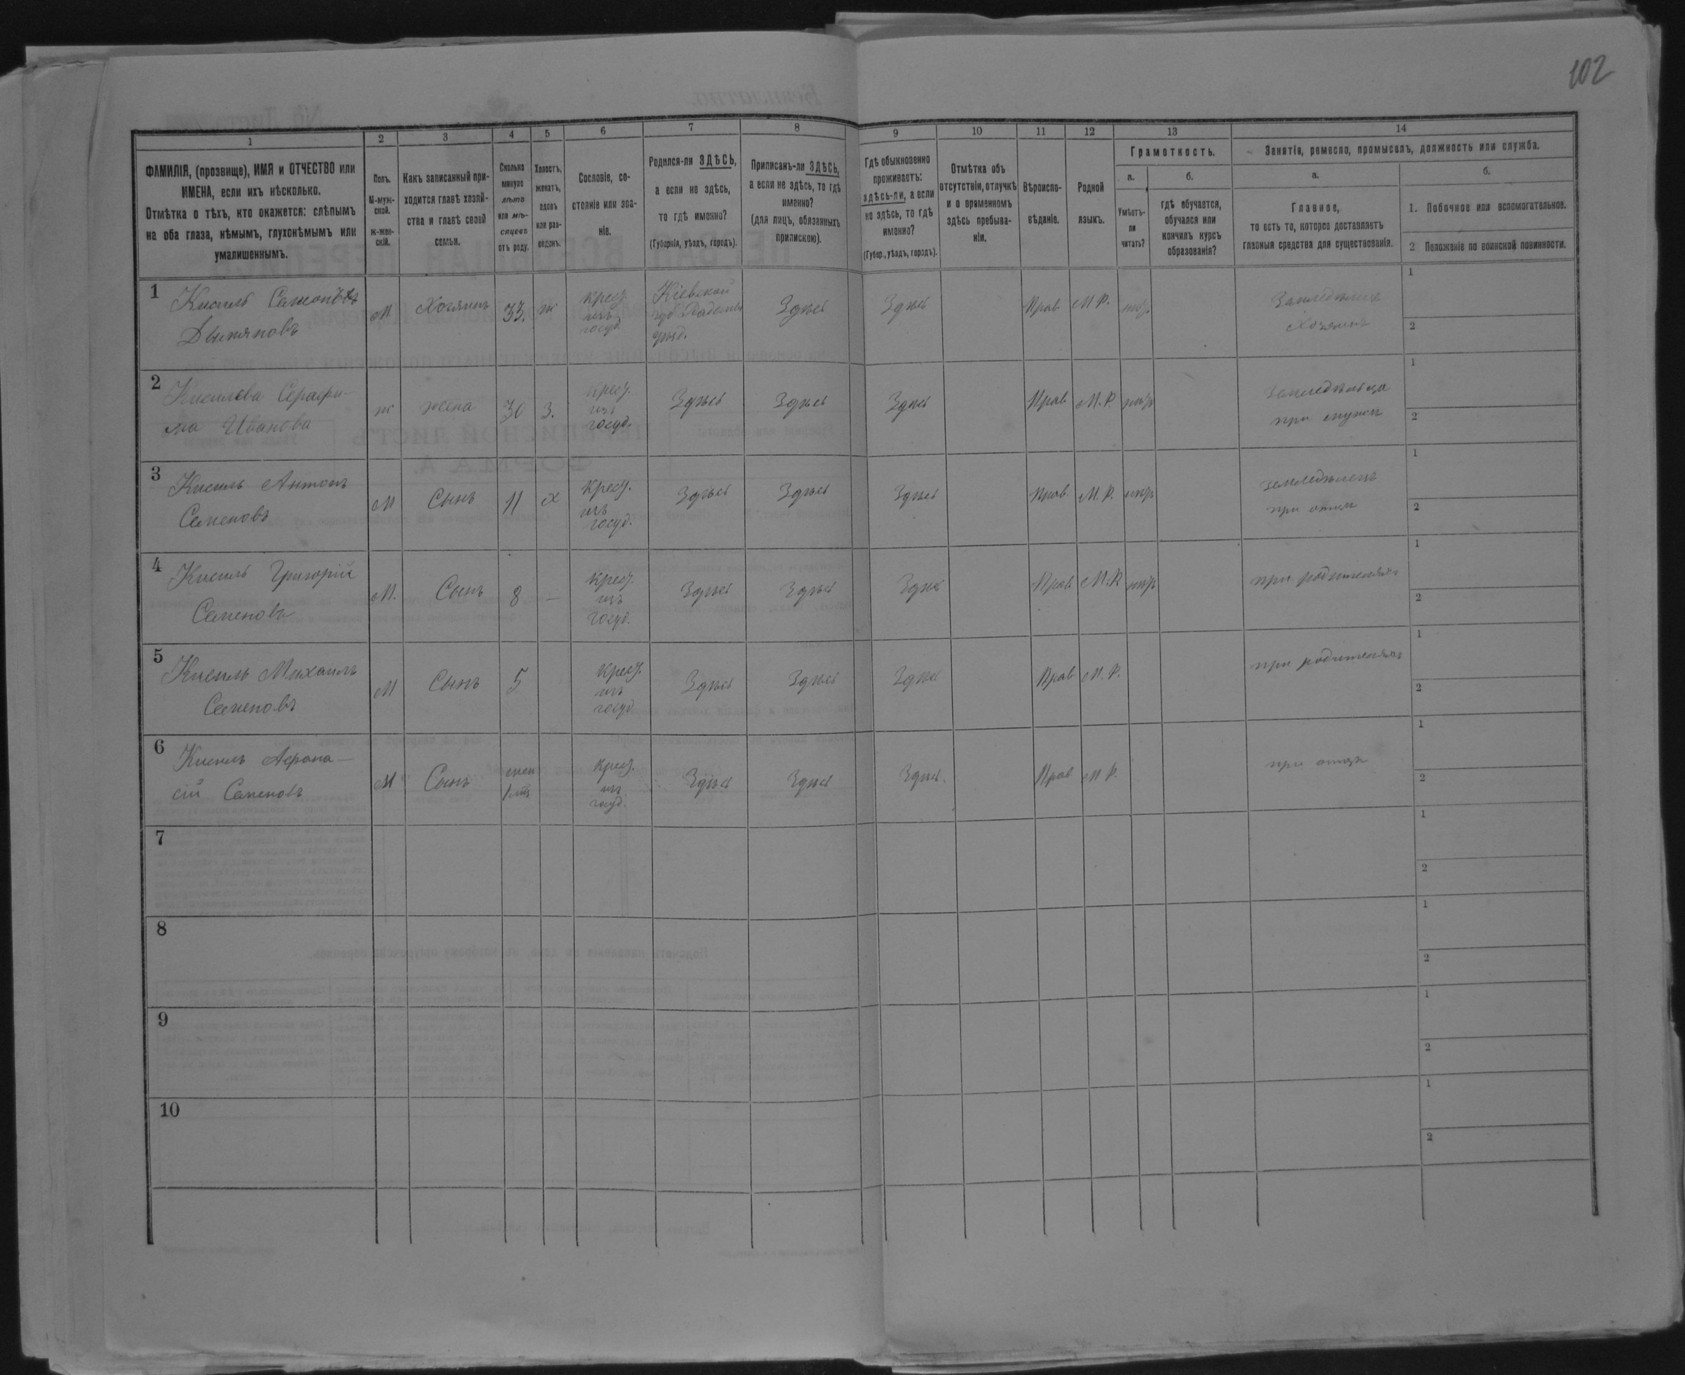 102
1
2
3
4
5
6
7
8
9
10
11
12
13
14
ФАМИЛІЯ, (прозвище), ИМЯ и ОТЧЕСТВО или
ИМЕНА, если ихъ нѣсколько.
Отмѣтка о тѣхъ, кто окажется: слѣпымъ
на оба глаза, нѣмымъ, глухонѣмымъ или
умалишеннымъ.
Полъ.
М-муж-
ской.
Ж-жен-
скій.
Какъ записанный при-
ходится главѣ хозяй-
ства и главѣ своей
семьи.
Сколько
минуло
лѣтъ
или мѣ-
сяцевъ
отъ роду.
Холостъ,
женатъ,
вдовъ
или раз-
веденъ.
Сословіе, со-
стояніе или зва-
ніе.
Родился-ли ЗДѢСЬ,
а если не здѣсь,
то гдѣ именно?
(Губернія, уѣздъ, городъ).
Приписанъ-ли ЗДѢСЬ,
а если не здѣсь, то гдѣ
именно?
(для лицъ, обязанныхъ
припискою).
Гдѣ обыкновенно
проживаетъ:
здѣсь-ли, а если
не здѣсь, то гдѣ
именно?
(Губер., уѣздъ, городъ).
Отмѣтка объ
отсутствіи, отлучкѣ
и о временномъ
здѣсь пребыва-
ніи.
Вѣроиспо-
вѣданіе.
Родной
языкъ.
Грамотность.
а.
Умѣетъ-
ли
читать?
б.
гдѣ обучается,
обучался или
кончилъ курсъ
образованія?
Занятія, ремесло, промыселъ, должность или служба.
а.
Главное,
то есть то, которое доставляетъ
главныя средства для существованія.
б.
1. Побочное или вспомогательное.
2 Положеніе по воинской повинности.
1
Кисиль
М
Хозяинъ
33.
ж
крест.
изъ
госуд
Кіевской
губ.
уѣзд.
Здѣсь
Здѣсь
Прав
М.Р.
Хозяинъ
1
2
2
Кисилева Серафи-
ма Иванова
ж
жена
30
З.
крест.
изъ
госуд.
Здѣсь
Здѣсь
Здѣсь
Прав
М.Р.
при мужѣ
1
2
3
Кисиль Антонъ
Семеновъ
М
Сынъ
11
х
крест.
изъ
госуд.
Здѣсь
Здѣсь
Здѣсь
Прав
М.Р.
земледѣлецъ
при отцѣ
1
2
4
Кисиль Григорій
Семеновъ
М.
Сынъ
8
—
крест.
изъ
госуд.
Здѣсь
Здѣсь
Здѣсь
Прав
М.Р.
при родителяхъ
1
2
5
Кисиль Михаилъ
Семеновъ
М
Сынъ
5
крест.
изъ
госуд.
Здѣсь
Здѣсь
Здѣсь
Прав
М.Р.
при родителяхъ
1
2
6
Кисиль Афана-
сій Семеновъ
М
Сынъ
крест.
изъ
госуд.
Здѣсь
Здѣсь
Здѣсь.
Прав
М.Р.
при отцѣ
1
2
7
1
2
8
1
2
9
1
2
10
1
2